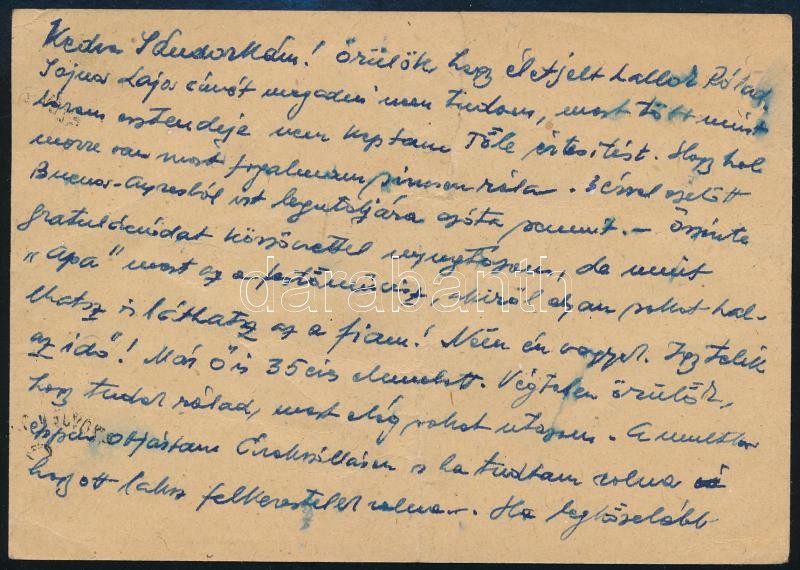 Kedves Sándorkám! Örülök, hogy életjelt hallok Rólad.
Sajnos Lajos címét megadni nem tudom, mert több mint
három esztendeje nem kaptam Tőle értesítést. Hogy hol
merre van most fogalmam sincsen róla. 3 évvel ezelőtt
Buenos-Ayresből írt legutoljára azóta semmit. – Őszinte
gratulációdat köszönettel nyugtázom, de mint
„apa" mert az a festőművész, akiről olyan sokat hal-
lhatsz is láthatsz az a fiam! Nem én vagyok. Így telik
az idő"! Már ő is 35 éves elmúlott. Végtelen örülök,
hogy tudok rólad, mert elég sokat utazom. A múltkor
éppen ottjártam Érsek is ha tudtam volna
hogy ott laksz felkerestelek volna. – Ha legközelebb
darabanth